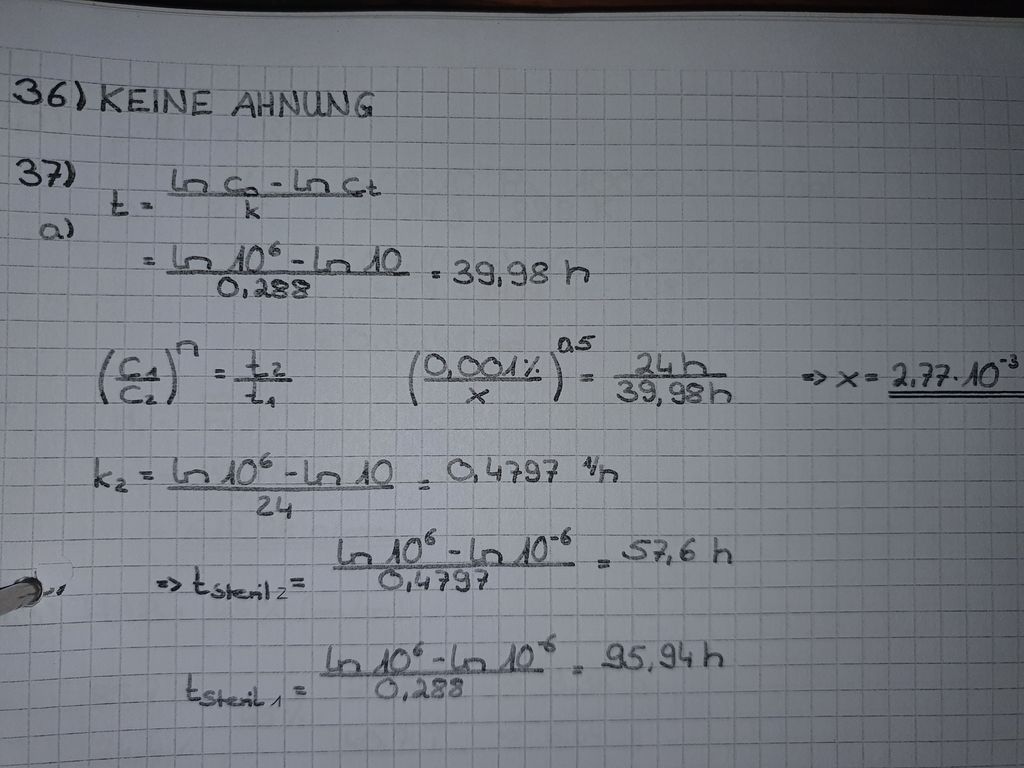 36) KEINE AHNUNG
37)
a) t = (ln c₀ - ln cₜ) / k
= (ln 10⁶ - ln 10) / 0,288 = 39,98 h
(C₁/C₂)ⁿ = t₂/t₁ (0,001%/x)^0,5 = 24h/39,98h => x = 2,77·10⁻³
k₂ = (ln 10⁶ - ln 10) / 24 = 0,4797 1/h
=> t steril 2 = (ln 10⁶ - ln 10⁻⁶) / 0,4797 = 57,6 h
t steril 1 = (ln 10⁶ - ln 10⁻⁶) / 0,288 = 95,94 h